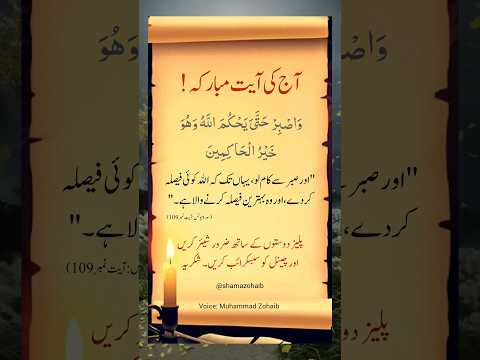 آج کی آیت مبارکہ !
وَاصْبِرْ حَتَّىٰ يَحْكُمَ اللَّهُ وَهُوَ
خَيْرُ الْحَاكِمِينَ
"اور صبر سے کام لو، یہاں تک کہ اللہ کوئی فیصلہ
کر دے، اور وہ بہترین فیصلہ کرنے والا ہے۔"
(سورۃ یونس: آیت نمبر 109)
پلیز دوستوں کے ساتھ ضرور شیئر کریں
اور چینل کو سبسکرائب کریں۔ شکریہ
@shamazohaib
Voice: Muhammad Zohaib
کر دے، اور وہ بہترین فیصلہ کرنے والا ہے۔"
آیت نمبر 109)
پلیز دو
کریں